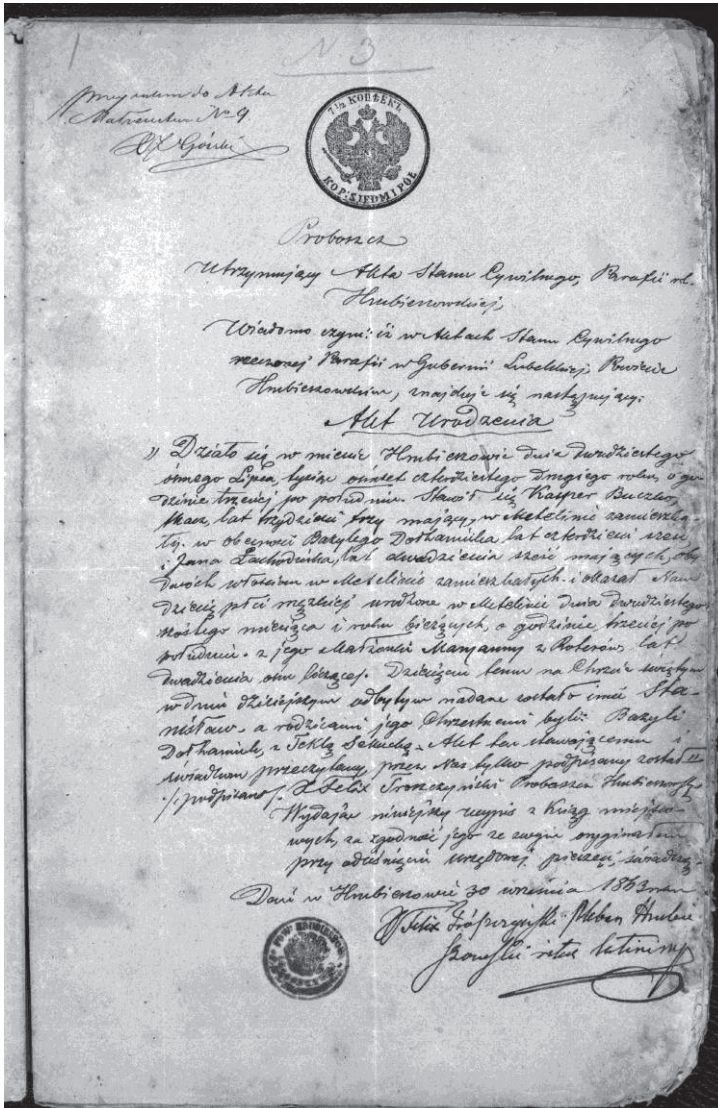 1
N. 3
przy ... do Aktu
Małżeństwa No 9.
X J Górski
7 1/2 КОПѢЕКЪ
KOP: SIEDM I PÓŁ
Proboszcz
Utrzymujący Akta Stanu Cywilnego, Parafii rk.
Hrubieszowskiej,
Wiadomo czyni: iż w Aktach Stanu Cywilnego
rzeczonej Parafii w Gubernii Lubelskiej, Powiecie
Hrubieszowskim, znajduje się następujący:
Akt Urodzenia
„ Działo się w mieście Hrubieszowie dnia dwudziestego
ósmego Lipca, tysiąc ośmset czterdziestego drugiego roku, o go
dzinie trzeciej po południu. Stawił się Kasper Buczko,
tkacz, lat trzydzieści trzy mający, w Metelinie zamieszka-
ły. w obecności Bazylego Dothaniuka, lat czterdzieści sześć,
i Jana Lachodiuka, lat dwadzieścia sześć mających, oby
dwóch włościan w Metelinie zamieszkałych. i okazał Nam
dziecię płci męzkiej urodzone w Metelinie dnia dwudziestego
szóstego miesiąca i roku bieżących, o godzinie trzeciej po
południu. z jego Małżonki Maryanny z Roterów, lat
dwadzieścia ośm liczącej. Dziecięciu temu na Chrzcie świętym
w dniu dzisiejszym odbytym nadane zostało imię Sta-
nisław. a rodzicami jego Chrzestnemi byli: Bazyli
Dothaniuk, z Teklą Sekuchą. Akt ten stawającemu i
świadkom przeczytany, przez Nas tylko podpisany został
./. podpisano ./. X Felix Troszczyński Proboszcz Hrubieszowski
Wydając niniejszy wypis z Księg miejsco-
wych, za zgodność jego ze swym oryginałem
przy odciśnięciu urzędowej pieczęci, świadczę.
Dań w Hrubieszowie 30 września 1863 roku
X Felix Trószczyński Pleban Hrubie
szowski ritus latini